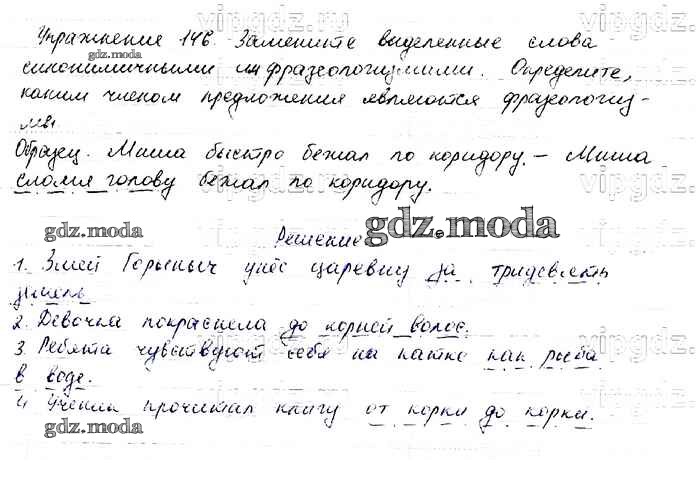 Упражнение 146. Замените выделенные слова
gdz.moda
синонимичными им фразеологизмами. Определите,
каким членом предложения являются фразеологиз-
мы.
Образец. Миша быстро бежал по коридору. – Миша
сломя голову бежал по коридору.
gdz.moda
Решение
gdz.moda
1. Змей Горыныч унёс царевну за тридевять
земель
2. Девочка покраснела до корней волос.
3. Ребята чувствуют себя на катке как рыба
в воде.
4. Ученик прочитал книгу от корки до корки.
gdz.moda
vipgdz.ru
vipgdz.ru
vipgdz.ru
vipgdz.ru